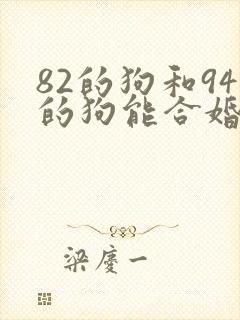 82的狗和94
的狗能合婚
梁慶一